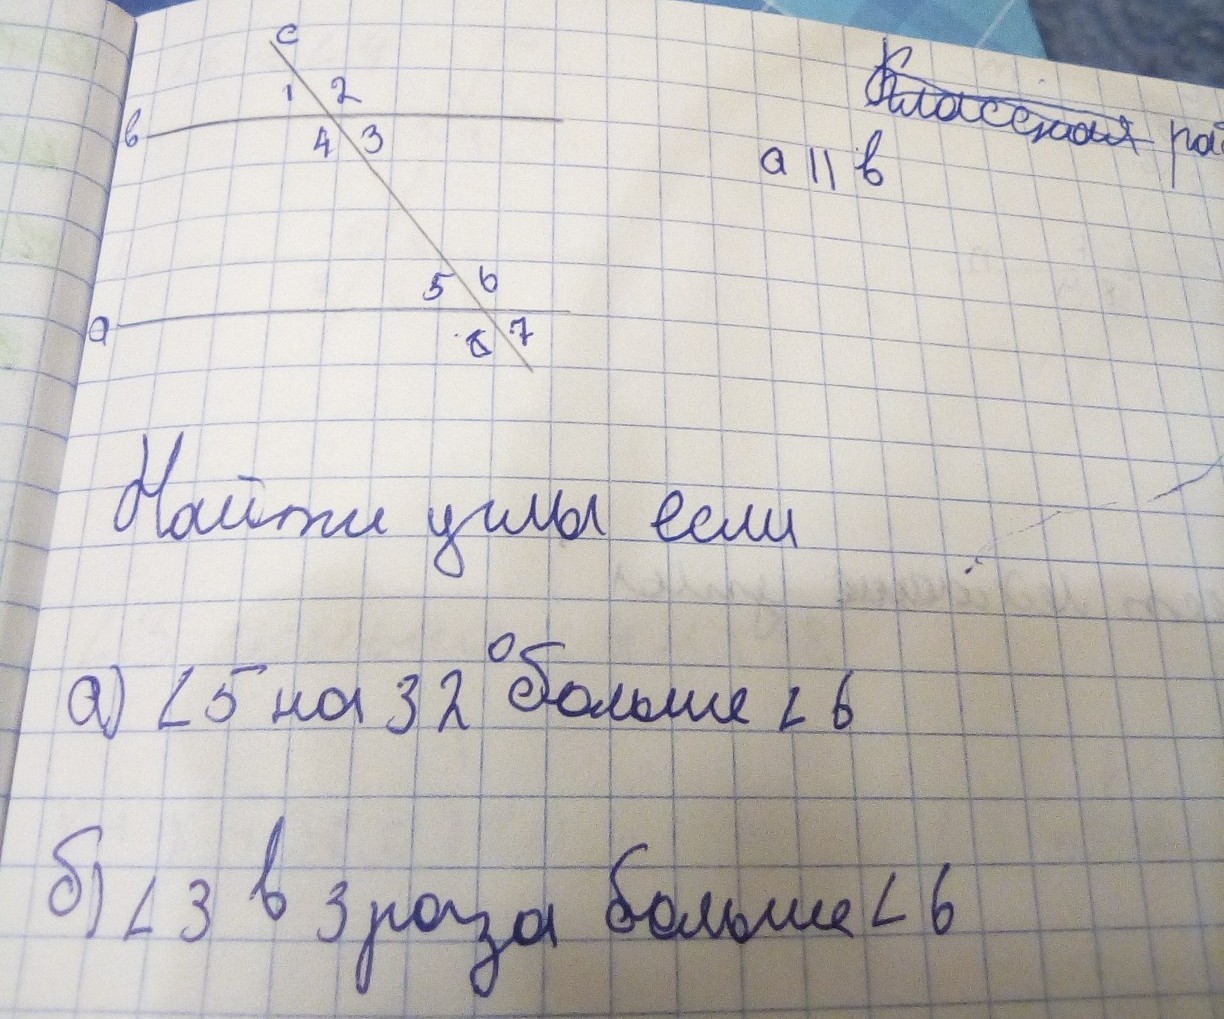 c
1 2
в
4 3
Классная
a || в
5 6
а
8 7
Найти углы если
а) ∠5 на 32° больше ∠6
б) ∠3 в 3 раза больше ∠6